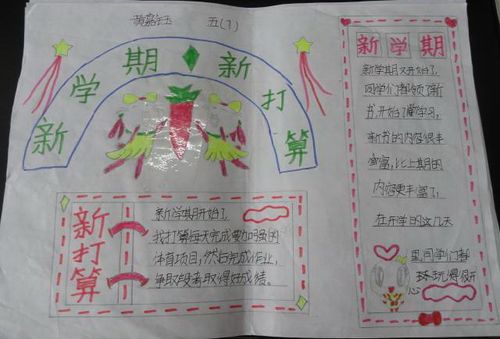 五(1)
新学期新打算
新打算
新学期开始了
我打算每天完成
体育项目，然后完成作业，
争取段考取得好成绩。
新学期
新学期又开始了
同学们都领了新
书开始了
新书的内容很丰
富，比上期的
内容更丰富了，
在开学的这几天
里同学们都
玩得很开
心